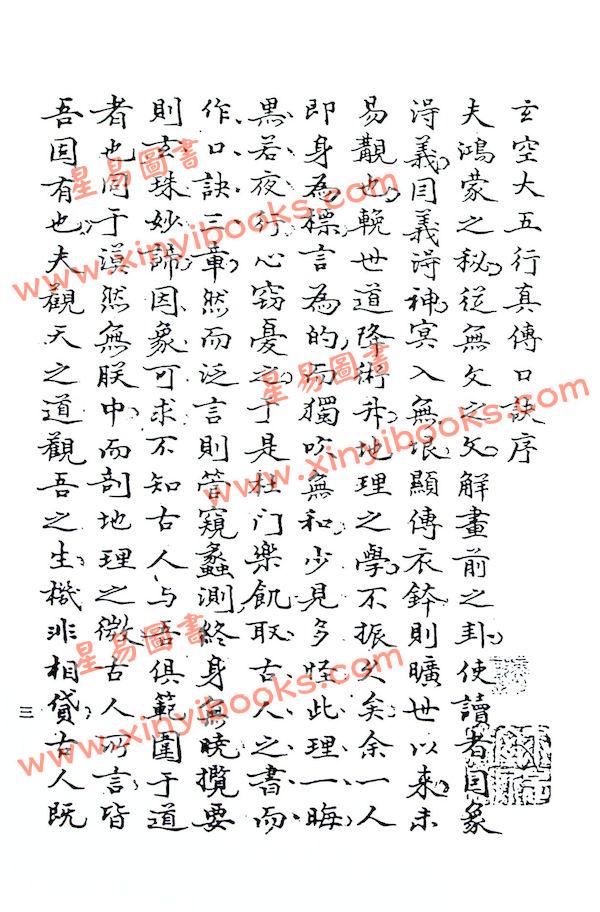 玄空大五行真傳口訣序
夫鴻蒙之秘從無文之文解畫前之卦使讀者因象
得義因義得神冥入無垠顯傳衣鉢則曠世以來未
易覯也輓世道降術升地理之學不振久矣余一人
即身為標言為的而獨吹無和少見多怪此理一晦
黑若夜行心竊憂之于是杜門樂飢取古人之書而
作口訣三章然而泛言則管窺蠡測終身無曉攬要
則玄珠妙諦因象可求不知古人与吾俱範圍于道
者也同于漠然無朕中而剖地理之微古人所言皆
吾固有也夫觀天之道觀吾之生機非相貸古人既
三
星易圖書
www.xinyibooks.com
星易圖書
www.xinyibooks.com
星易圖書
www.xinyibooks.com